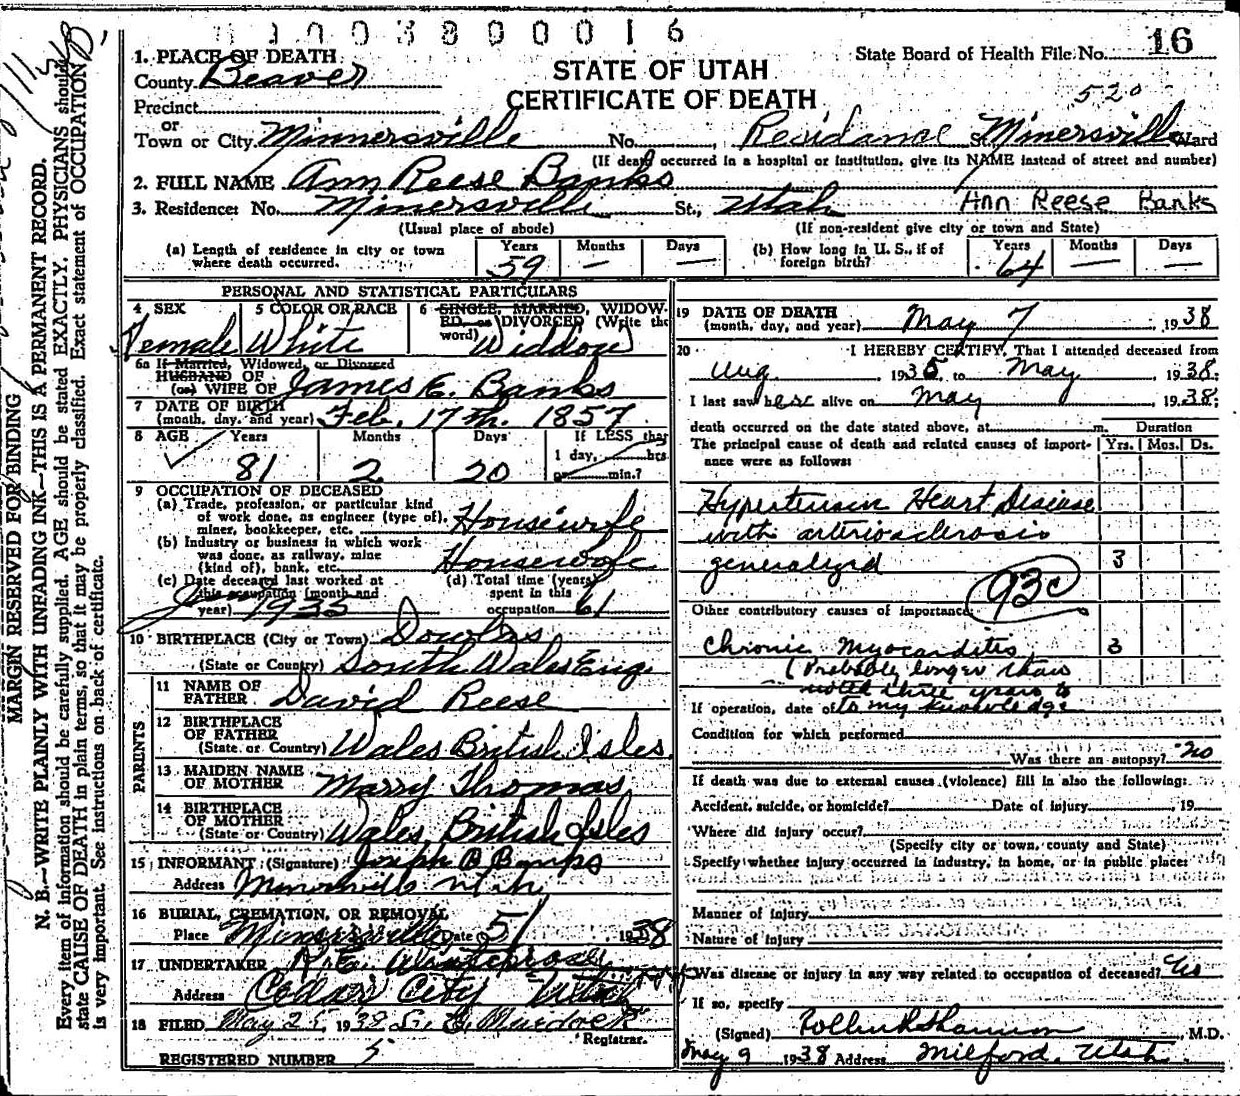 1 1 0 0 3 8 0 0 0 1 6
State Board of Health File No. 16
STATE OF UTAH
CERTIFICATE OF DEATH
520
1. PLACE OF DEATH
County Beaver
Precinct
or
Town or City Minnersville No. Residance St. Minersville Ward
(If death occurred in a hospital or institution, give its NAME instead of street and number)
2. FULL NAME Ann Reese Banks
3. Residence: No. Minersville St., Utah Ann Reese Banks
(Usual place of abode) (If non-resident give city or town and State)
(a) Length of residence in city or town where death occurred. Years 59 Months — Days —
(b) How long in U. S., if of foreign birth? Years 64 Months — Days —
PERSONAL AND STATISTICAL PARTICULARS
4 SEX Female
5 COLOR OR RACE White
6 SINGLE, MARRIED, WIDOWED, or DIVORCED (Write the word) Widdow
6a If Married, Widowed, or Divorced
HUSBAND OF
(or) WIFE OF James E. Banks
7 DATE OF BIRTH
(month, day, and year) Feb. 17th. 1857
8 AGE Years 81 Months 2 Days 20 If LESS than 1 day, hrs. or min.?
9 OCCUPATION OF DECEASED
(a) Trade, profession, or particular kind of work done, as engineer (type of), miner, bookkeeper, etc. Housewife
(b) Industry or business in which work was done, as railway, mine (kind of), bank, etc. Housewok
(c) Date deceased last worked at this occupation (month and year) 1935
(d) Total time (years) spent in this occupation 61
10 BIRTHPLACE (City or Town) Dowlas
(State or Country) South Wales Eng.
PARENTS
11 NAME OF FATHER David Reese
12 BIRTHPLACE OF FATHER
(State or Country) Wales British Isles
13 MAIDEN NAME OF MOTHER Marry Thomas
14 BIRTHPLACE OF MOTHER
(State or Country) Wales British Isles
15 INFORMANT (Signature) Joseph B Banks
Address Minersville Utah
16 BURIAL, CREMATION, OR REMOVAL
Place Minersville Date 5/ 1938
17 UNDERTAKER
Address Cedar City Utah
18 FILED May 25, 1938 Murdock
Registrar.
REGISTERED NUMBER 5
19 DATE OF DEATH
(month, day, and year) May 7 1938
20 I HEREBY CERTIFY, That I attended deceased from
Aug. 1935, to May 1938:
I last saw her alive on May 1938;
death occurred on the date stated above, at m. Duration
The principal cause of death and related causes of importance were as follows: Yrs. Mos. Ds.
Hypertensin Heart Disease
with arteriosclerosis
generalized 3
93c
Other contributory causes of importance:
Chronic Myocarditis 3
(Probably longer than
noted three years to
If operation, date of to my knowledge
Condition for which performed
Was there an autopsy? no
If death was due to external causes (violence) fill in also the following:
Accident, suicide, or homicide? Date of injury 19
Where did injury occur?
(Specify city or town, county and State)
Specify whether injury occurred in industry, in home, or in public place:
Manner of injury
Nature of injury
Was disease or injury in any way related to occupation of deceased?
If so, specify
(Signed) M.D.
May 9 1938 Address Milford, Utah
MARGIN RESERVED FOR BINDING
N. B.—WRITE PLAINLY WITH UNFADING INK—THIS IS A PERMANENT RECORD.
Every item of information should be carefully supplied. AGE should be stated EXACTLY. PHYSICIANS should
state CAUSE OF DEATH in plain terms, so that it may be properly classified. Exact statement of OCCUPATION
is very important. See instructions on back of certificate.